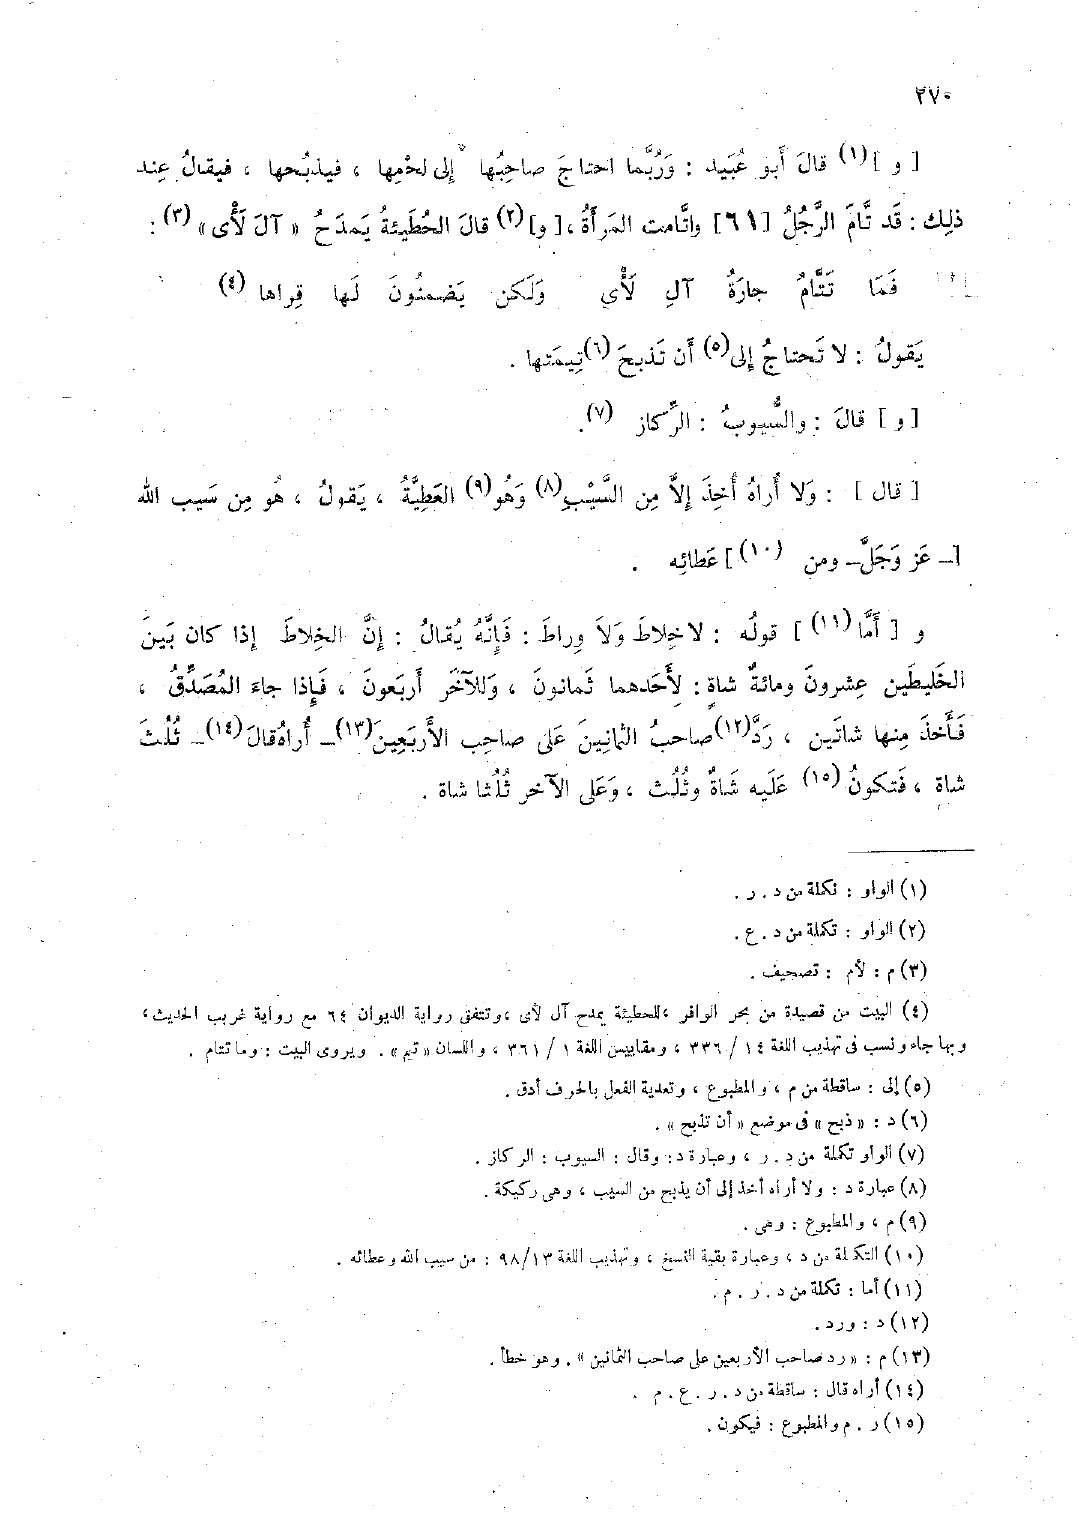 ٢٧٠
[ و ](١) قالَ أَبو عُبَيد : وَرُبَّما احتاجَ صاحِبُها إِلى لحْمِها ، فيذبُحها ، فيقالُ عِند
ذلِك : قَد تَّامَ الرَّجُلُ [٦١] واتَّامت المَرأَةُ ، [و](٢) قالَ الحُطَيئةُ يَمدَحُ « آلَ لَأْى » (٣) :
فَمَا تَتَّامُ جارَةُ آلِ لَأْى وَلَكن يَضمنُونَ لَها قِراها (٤)
يَقولُ : لا تَحتاجُ إِلى(٥) أَن تَذبحَ (٦)تِيمَتها .
[ و ] قالَ : والسُّيوبُ : الرِّكاز (٧).
[ قال ] : وَلا أُراهُ أُخِذَ إِلاَّ مِن السَّيْبِ(٨) وَهُو(٩) العَطِيَّةُ ، يَقولُ ، هُو مِن سَيب الله
[ـ عَز وَجَلَّ ـ ومن (١٠)] عَطائِه .
و [ أَمَّا (١١) ] قولُه : لا خِلاطَ وَلاَ وِراطَ : فَإِنَّهُ يُقالُ : إِنَّ الخِلاطَ إذا كان بَينَ
الخَليطَين عِشرونَ ومائةُ شاةٍ : لِأَحَدهما ثَمانونَ ، وَللآخَر أَربَعونَ ، فَإِذا جاءَ المُصَدِّقُ ،
فَأَخذَ مِنها شاتَين ، رَدَّ(١٢) صاحبُ الثمانِينَ عَلى صاحِب الأَربَعِينَ(١٣) ـ أُراهُ قالَ(١٤) ـ ثُلُثَ
شاة ، فَتكونُ (١٥) عَلَيه شَاةٌ وثُلُث ، وَعَلى الآخر ثُلُثا شاة .
(١) الواو : تكملة من د . ر .
(٢) الواو : تكملة من د . ع .
(٣) م : لأم : تصحيف .
(٤) البيت من قصيدة من بحر الوافر ، للحطيئة يمدح آل لأى ، وتتفق رواية الديوان ٦٤ مع رواية غريب الحديث ،
وبها جاء ونسب فى تهذيب اللغة ١٤ / ٣٣٦ ، ومقاييس اللغة ١ / ٣٦١ ، واللسان « تيم » . ويروى البيت : وما تتام .
(٥) إلى : ساقطة من م ، والمطبوع ، وتعدية الفعل بالحرف أدق .
(٦) د : « ذبح » فى موضع « أن تذبح » .
(٧) الواو تكملة من د . ر ، وعبارة د : وقال : السيوب : الركاز .
(٨) عبارة د : ولا أراه أخذ إلى أن يذبح من السيب ، وهى ركيكة .
(٩) م ، والمطبوع : وهى .
(١٠) التكملة من د ، وعبارة بقية النسخ ، وتهذيب اللغة ٩٨/١٣ : من سيب الله وعطائه .
(١١) أما : تكملة من د . ر . م .
(١٢) د : ورد .
(١٣) م : « رد صاحب الأربعين على صاحب الثمانين » . وهو خطأ .
(١٤) أراه قال : ساقطة من د . ر . ع . م .
(١٥) ر . م والمطبوع : فيكون .